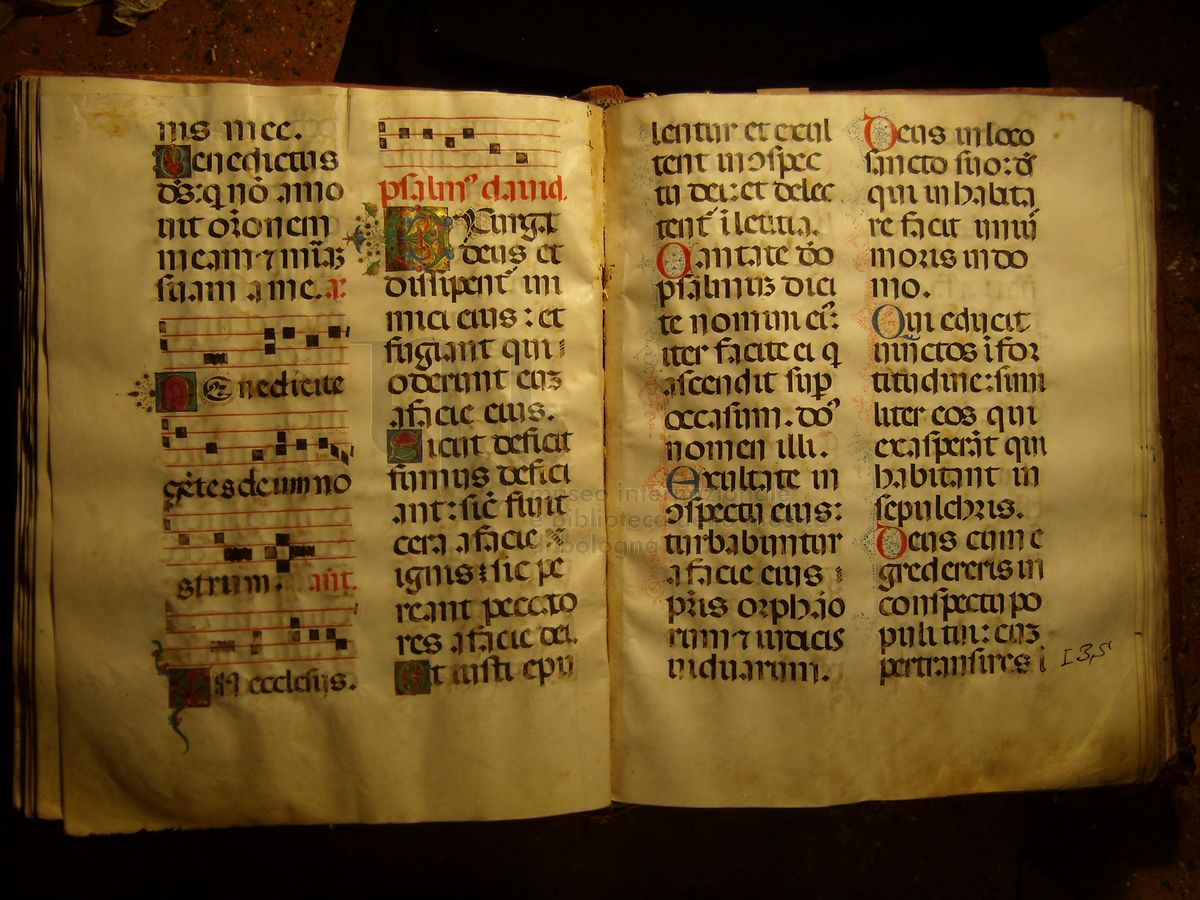 nis mee.
Benedictus
ds: q nō amo
uit orōnem
meam ⁊ mīaȝ
suam a me. a:
Benedicite
gētes deum no
strum. ant.
In ecclesiis.
psalmꝰ dauid.
Exurgat
deus et
dissipent᷑ ini
mici eius : et
fugiant qui
oderunt euȝ
a facie eius.
Sicut deficit
fumus defici
ant: sic̄ fluit
cera a facie
ignis: sic pe
reant peccato
res a facie dei.
Et iusti epu
lentur et exul
tent in ↄspec
tu dei: et delec
tent᷑ ī letitia.
Cantate dō
psalmuȝ dici
te nomini eiꝰ:
iter facite ei q
ascendit sup̄
occasum. dōꝰ
nomen illi.
Exultate in
ↄspectu eius:
turbabuntur
a facie eius :
pr̄is orphāo
rum ⁊ iudicis
uiduarum.
Deus in loco
sancto suo: ds̄
qui inhabita
re facit unīꝰ
moris in do
mo.
Qui educit
uinctos ī for
titudine: simi
liter eos qui
exasperāt qui
habitant in
sepulchris.
Deus cum e
gredereris in
conspectu po
puli tui: cuȝ
pertransires i
135
museo internazionale
e biblioteca della musica
di bologna